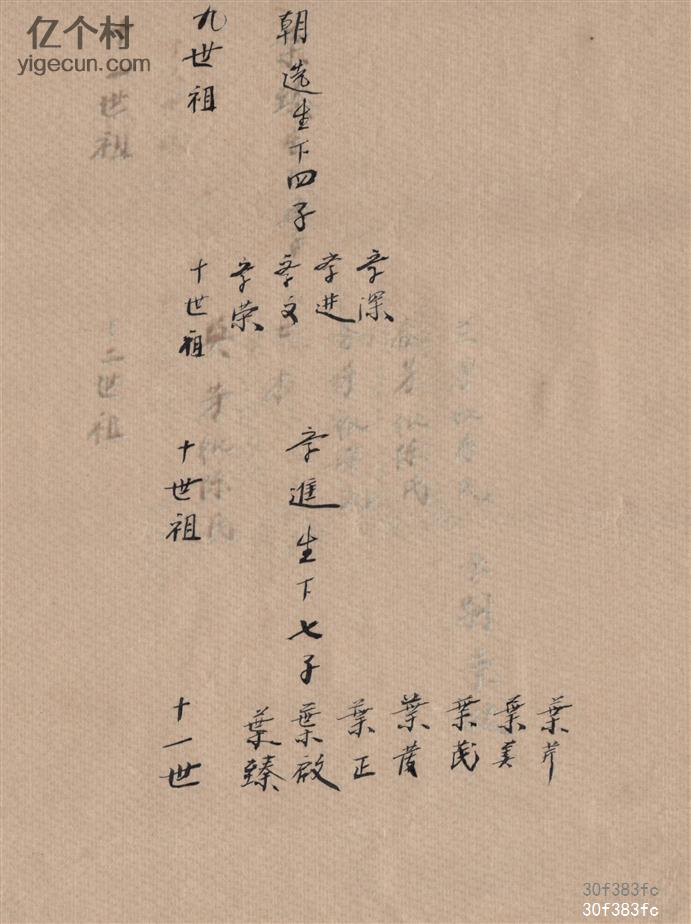 亿个村
yigecun.com
九世祖
朝选生下四子
十世祖
荣
文
进
深
十世祖
進生下七子
十一世
葉臻
葉啟
葉正
葉茂
葉民
葉美
葉芹
30f383fc
30f383fc